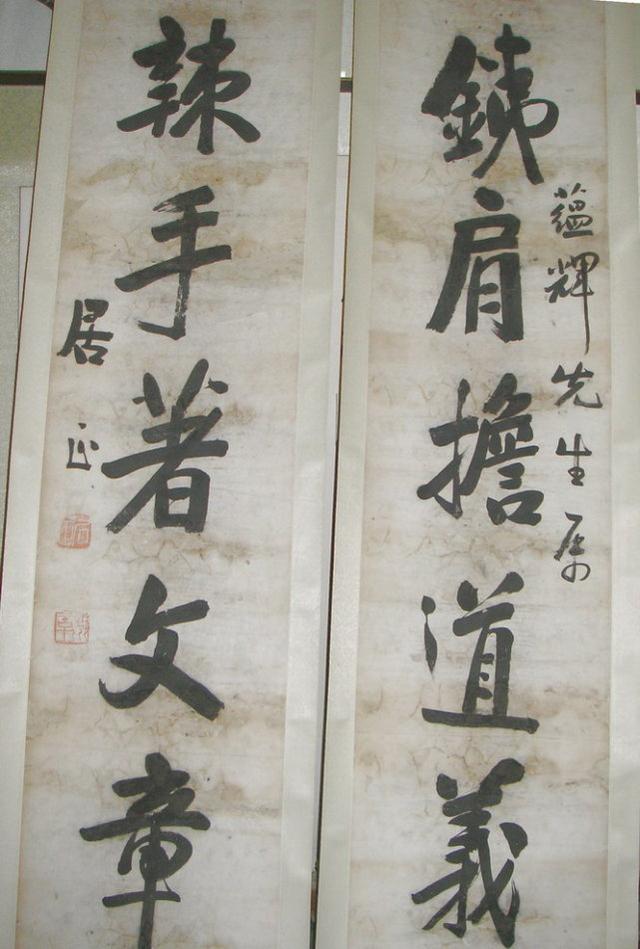 薀輝先生属
銕肩擔道義
辣手著文章
居正